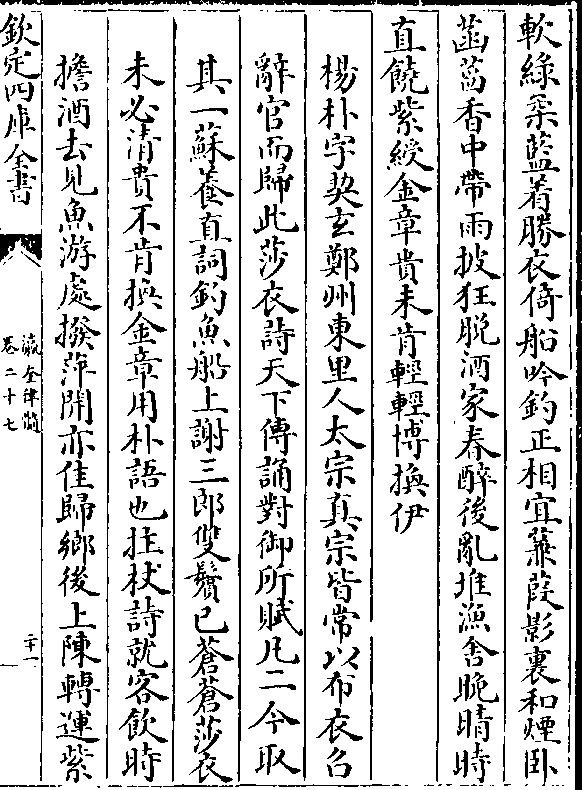 軟綠柔藍着勝衣倚船吟釣正相宜蒹葭影裏和煙臥
菡萏香中帶雨披狂脫酒家春醉後亂堆漁舍晚晴時
直饒紫綬金章貴未肯輕輕博換伊
楊朴字契玄鄭州東里人太宗真宗皆常以布衣召
辭官而歸此莎衣詩天下傳誦對御所賦凡二今取
其一蘇養直詞釣魚船上謝三郎雙鬢已蒼蒼莎衣
未必清貴不肯換金章用朴語也拄杖詩就客飲時
擔酒去見魚游處撥萍開亦佳歸鄉後上陳轉運紫
欽定四庫全書
瀛奎律髓
卷二十七
二十一